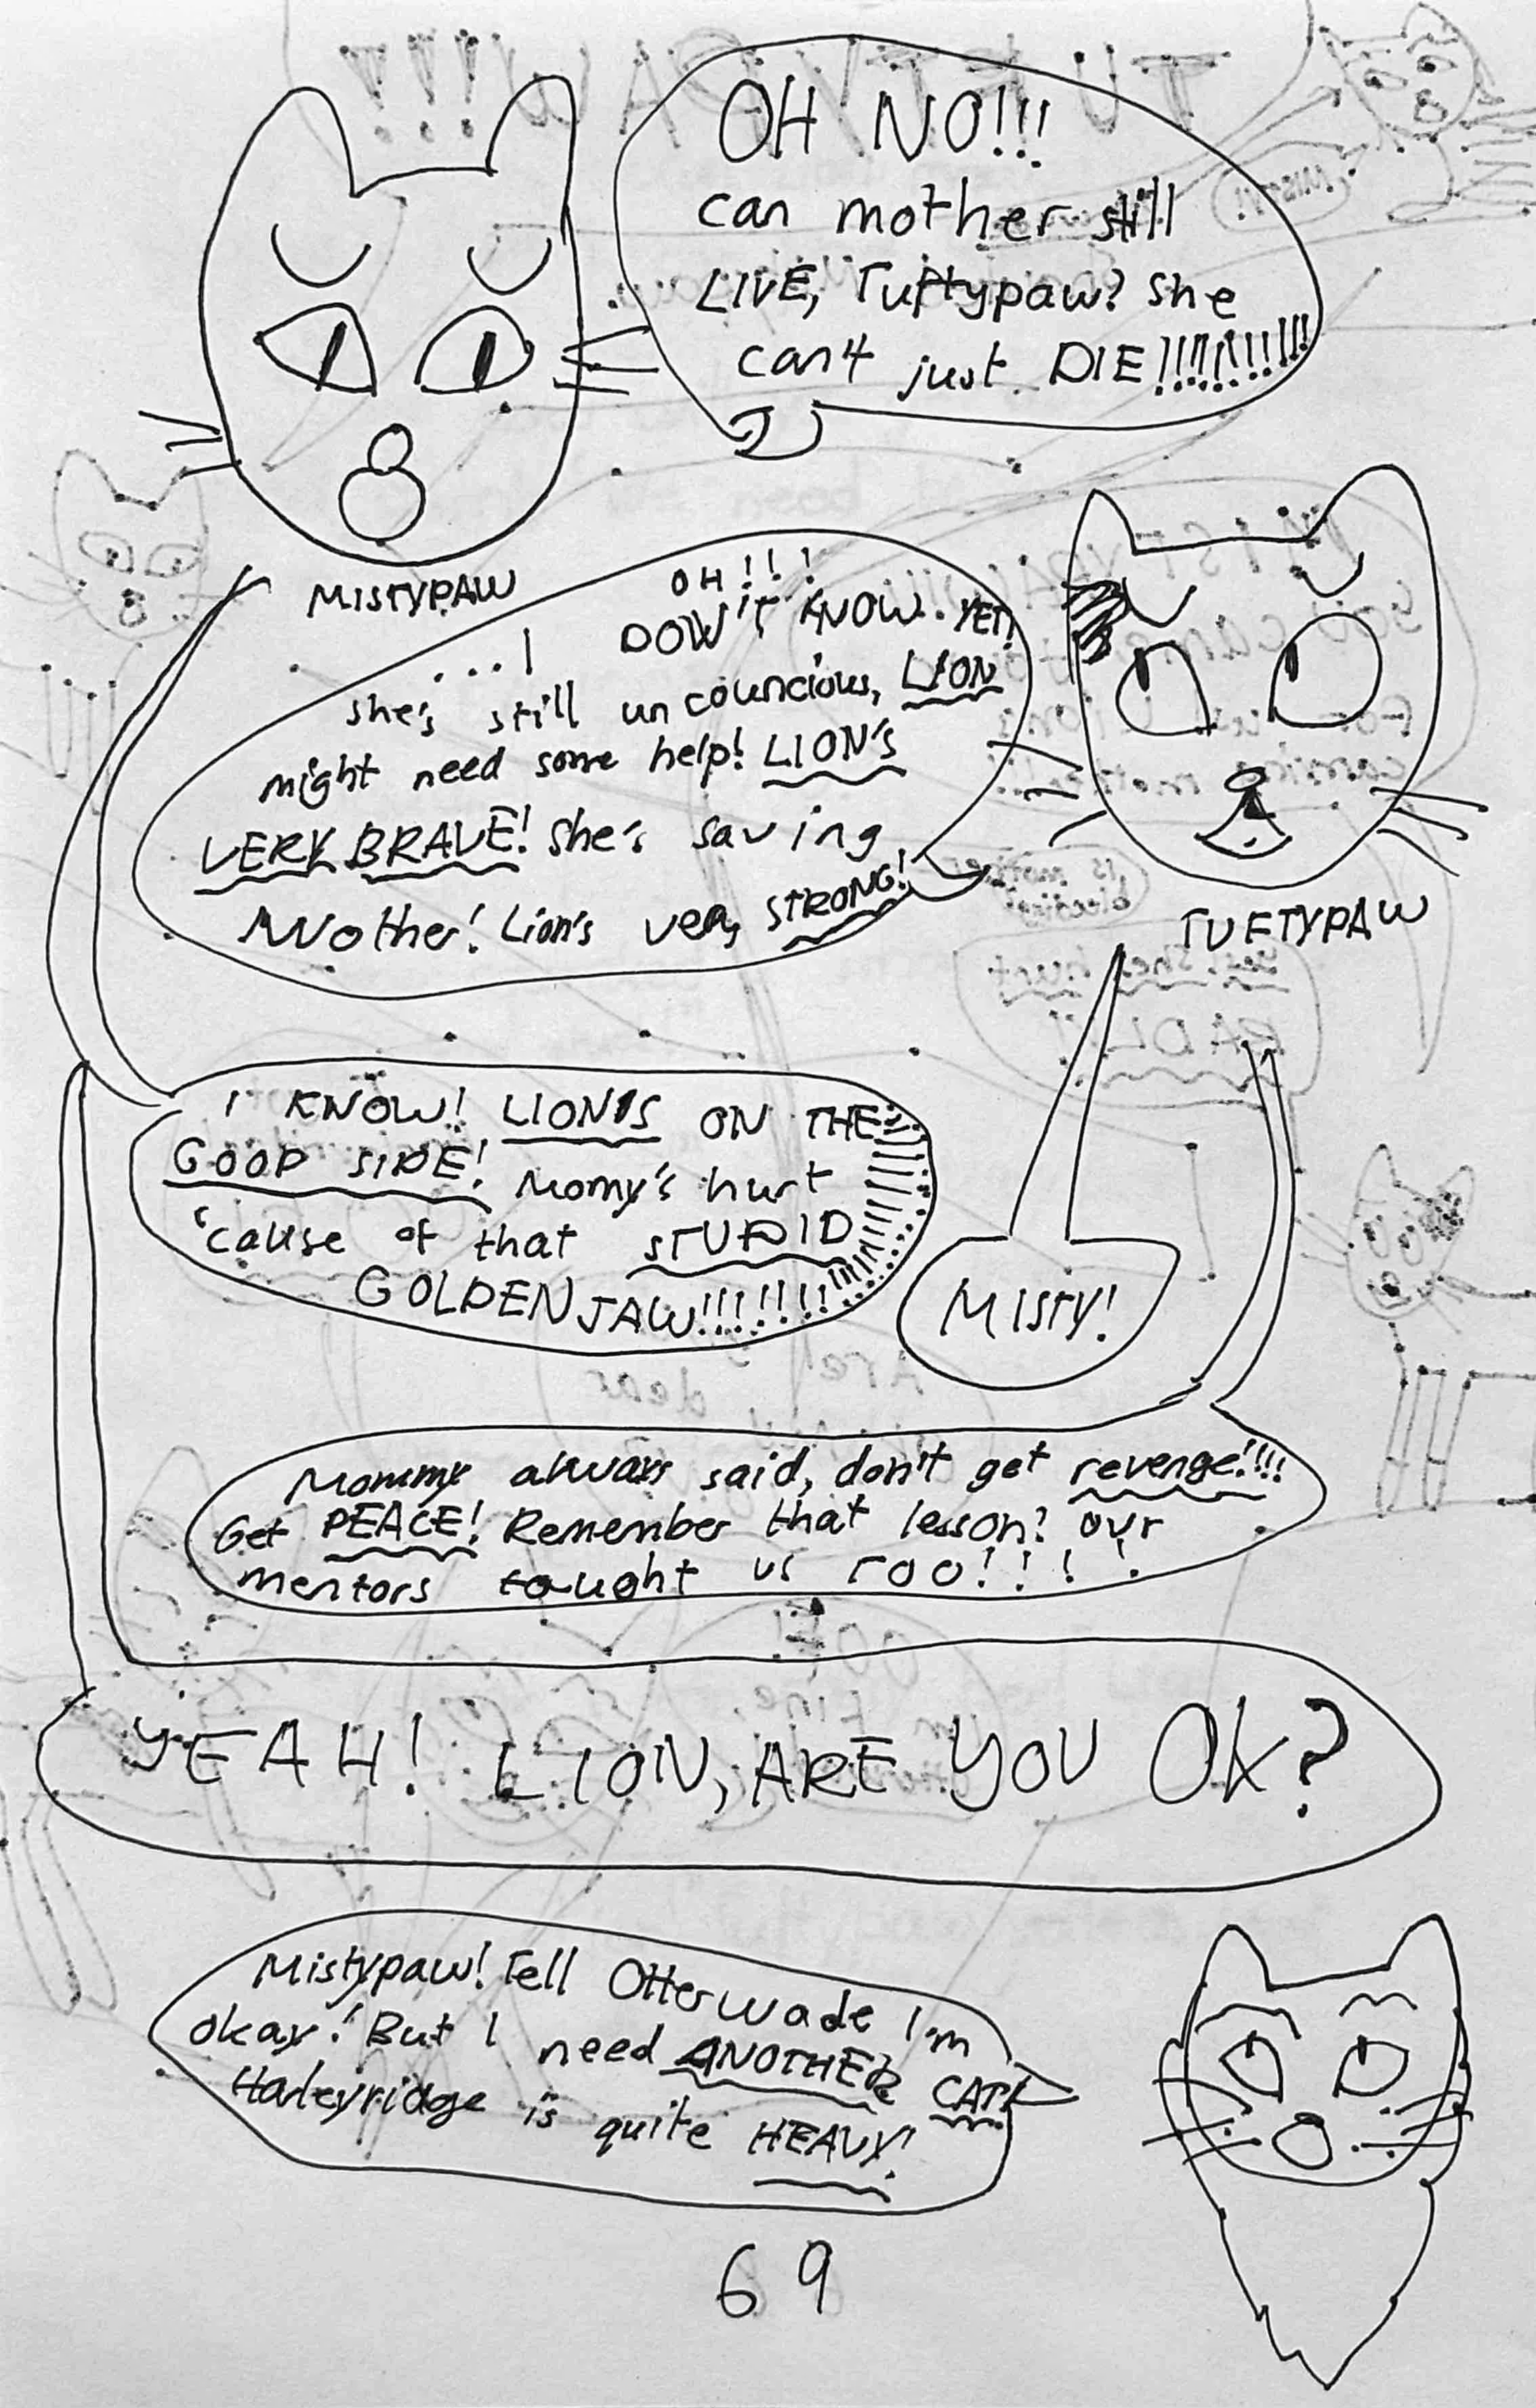 OH NO!!!
can mother still
LIVE, Tuftypaw? She
can't just DIE!!!!!!!!!!!!
MISTYPAW
OH!!!
...I DOW'T KNOW. YET!
she's still un councious, LION
might need some help! LION'S
VERY BRAVE! She's saving
Mother! Lion's very STRONG!
TUFTYPAW
I KNOW! LION'S ON THE
GOOD SIDE! Momy's hurt
'cause of that STUPID
GOLDEN JAW!!!!!!!!!!!!
MISTY!
Mommy always said, don't get revenge!!!!
Get PEACE! Remember that lesson? our
mentors tought us too!!!!
YEAH! LION, ARE YOU OK?
Mistypaw! Tell Otterwade I'm
okay! But I need ANOTHER CAT!
Harleyridge is quite HEAVY!
69